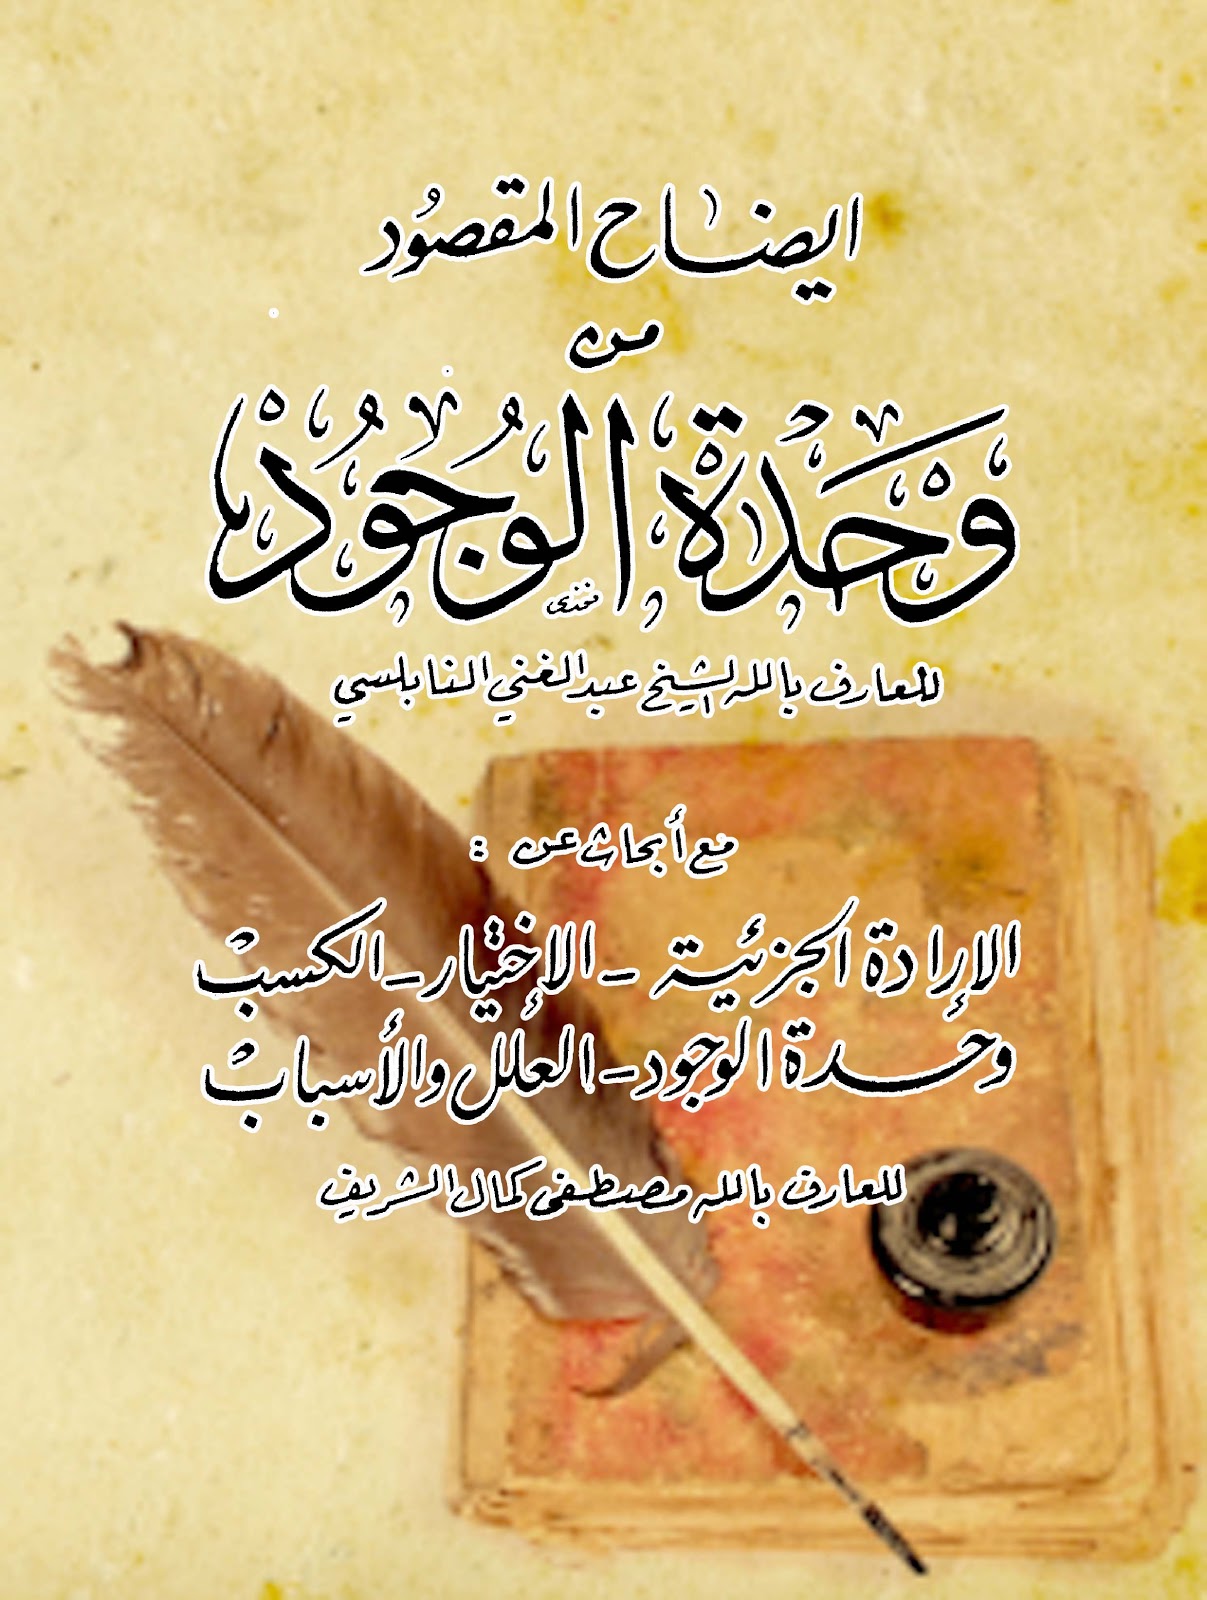 ايضاح المقصُود
من
وَحْدَة الوُجُودْ
للعارف بالله الشيخ عبد الغني النابلسي
مع أبحاث عن :
الإرادة الجزئية - الإختيار - الكسبْ
وحدة الوجود - العلل والأسبابْ
للعارف بالله مصطفى كمال الشريف